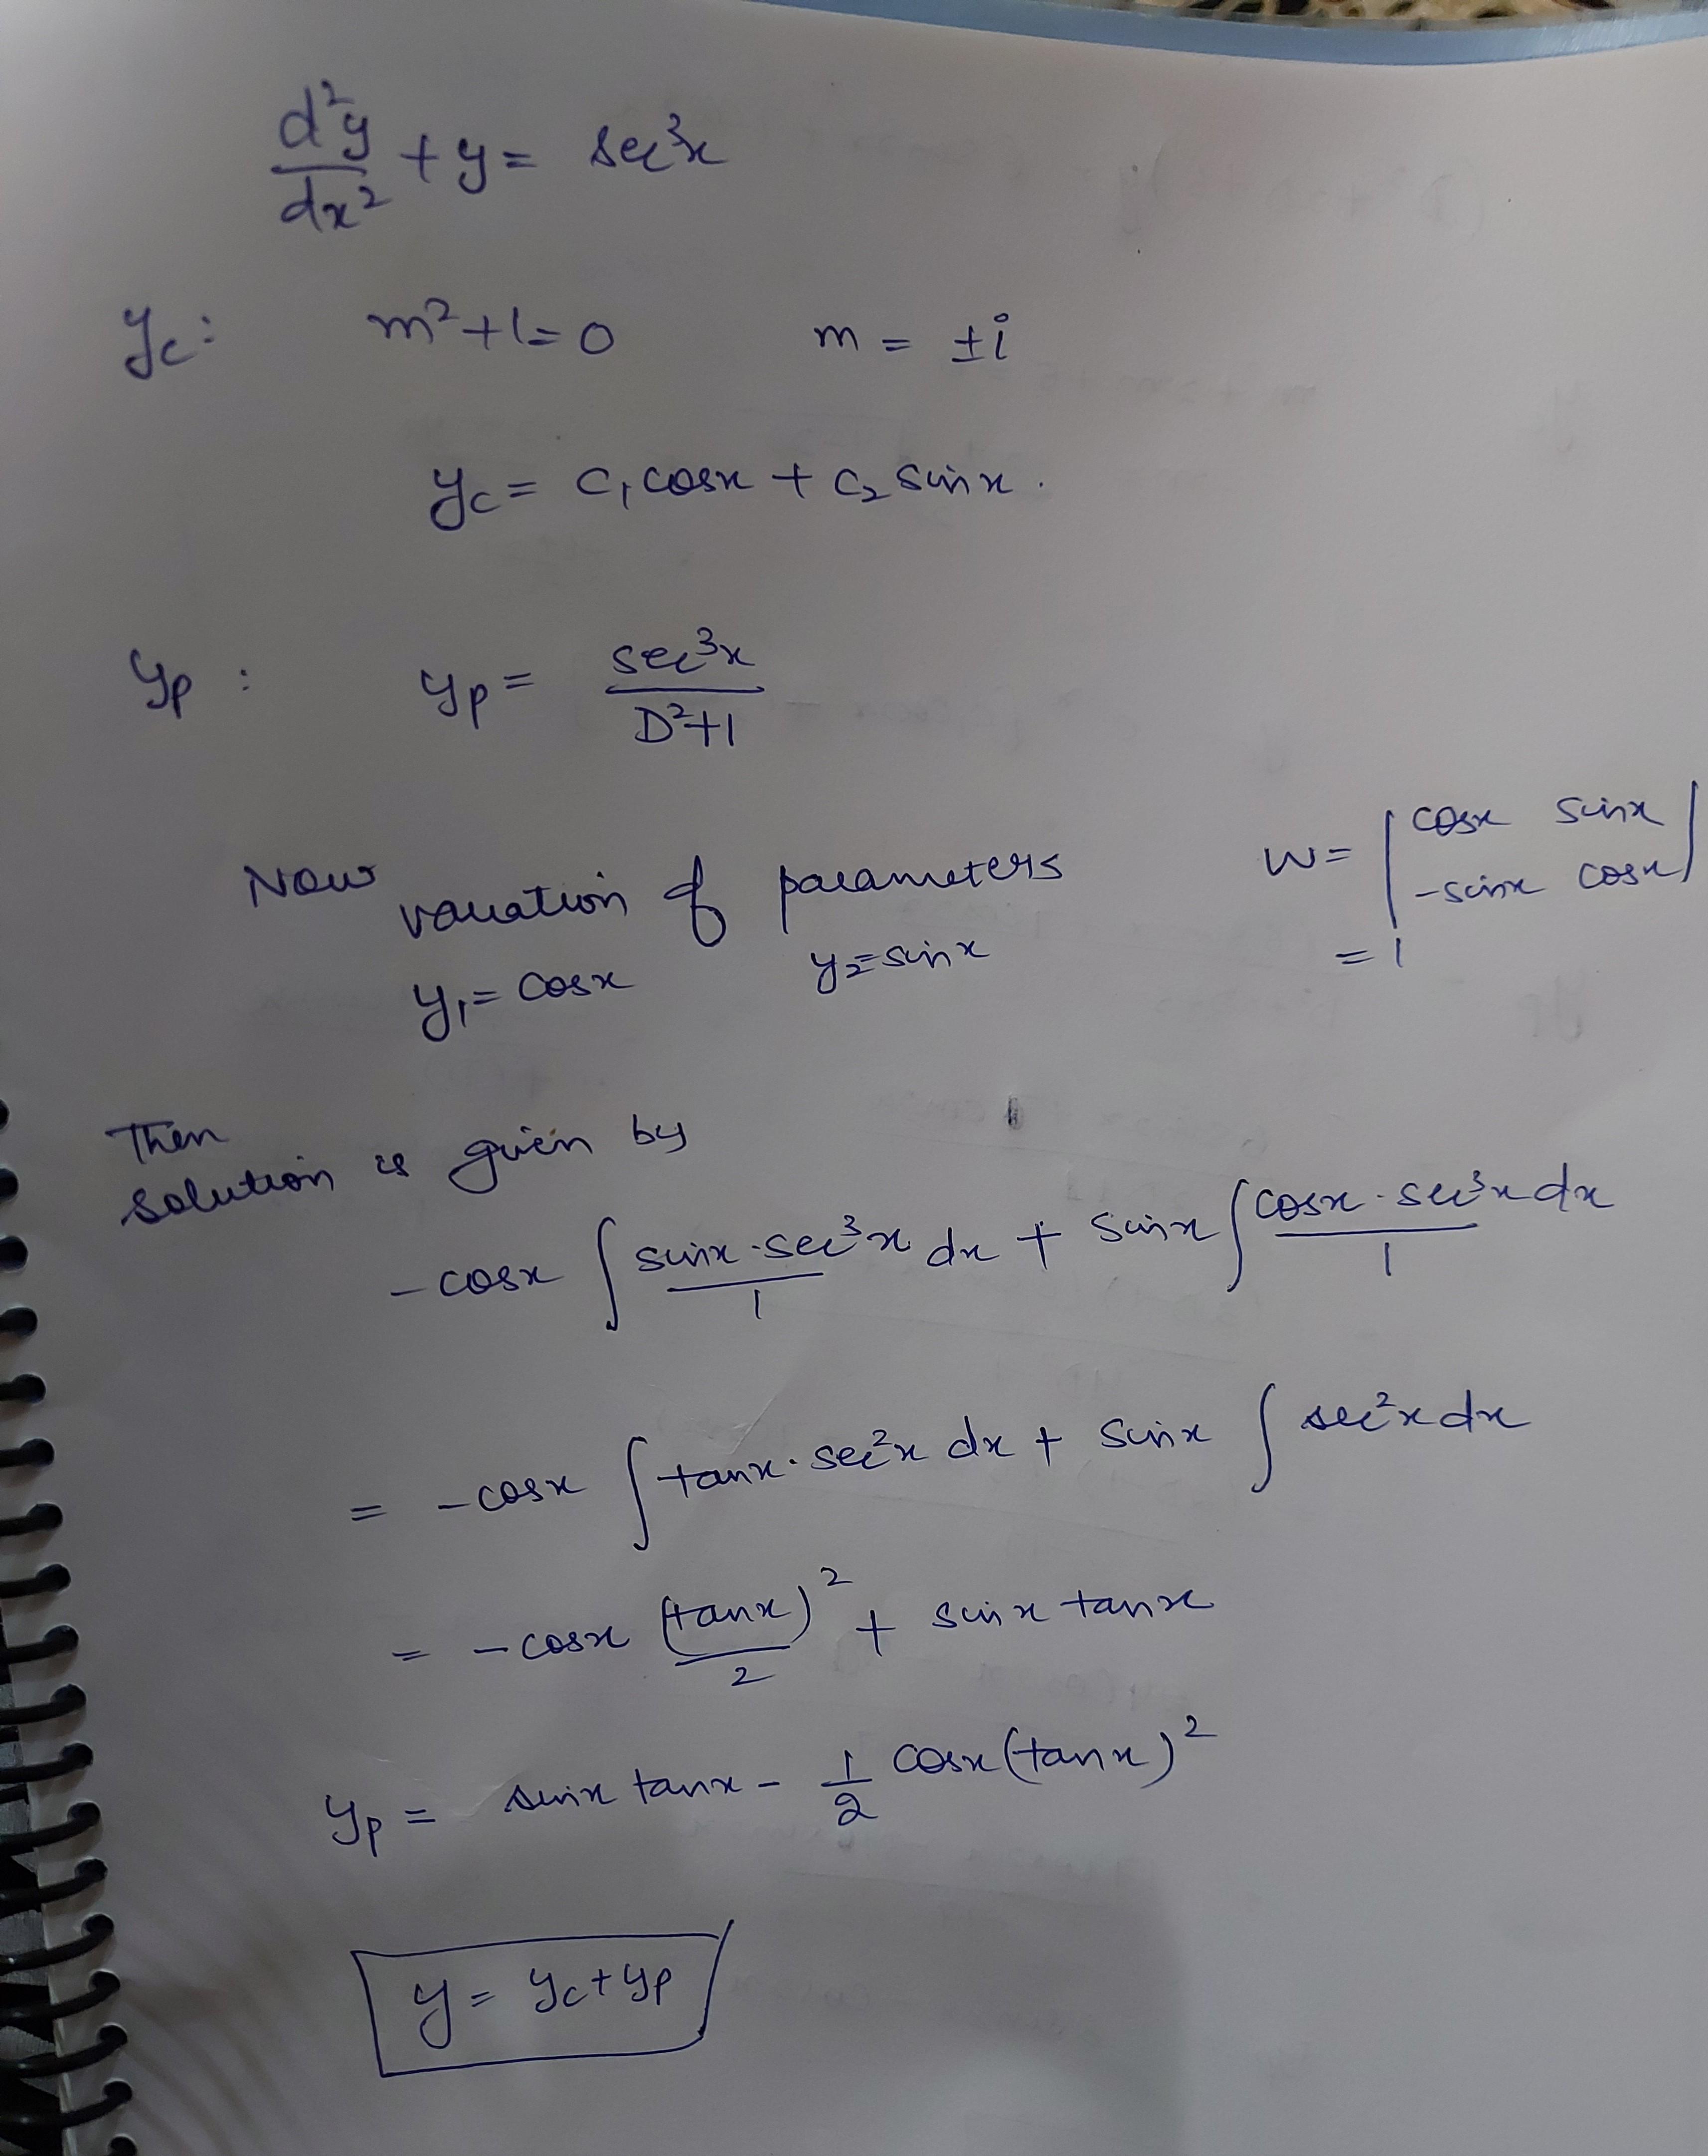 d²y/dx² + y = sec³x
y_c : m²+1=0 m = ±i
y_c = C₁ cosx + C₂ sinx.
y_p : y_p = sec³x / D²+1
Now variation of parameters W = | cosx sinx | | -sinx cosx |
y₁ = cosx y₂ = sinx = 1
Then
solution is given by
- cosx ∫ sinx·sec³x / 1 dx + sinx ∫ cosx·sec³x dx / 1
= - cosx ∫ tanx·sec²x dx + sinx ∫ sec²x dx
= - cosx (tanx)² / 2 + sinx tanx
y_p = sinx tanx - 1/2 cosx (tanx)²
y = y_c + y_p